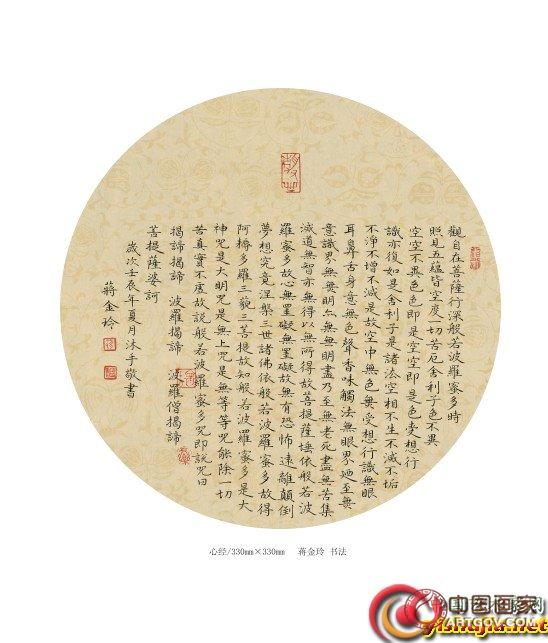 觀自在菩薩行深般若波羅蜜多時
照見五蘊皆空度一切苦厄舍利子色不異
空空不異色色即是空空即是色受想行
識亦復如是舍利子是諸法空相不生不滅不垢
不淨不增不減是故空中無色無受想行識無眼
耳鼻舌身意無色聲香味觸法無眼界乃至無
意識界無無明亦無無明盡乃至無老死盡無苦集
滅道無智亦無得以無所得故菩提薩埵依般若波
羅蜜多故心無罣礙無罣礙故無有恐怖遠離顛倒
夢想究竟涅槃三世諸佛依般若波羅蜜多故得
阿耨多羅三藐三菩提故知般若波羅蜜多是大
神咒是大明咒是無上咒是無等等咒能除一切
苦真實不虛故說般若波羅蜜多咒即說咒曰
揭諦揭諦 波羅揭諦 波羅僧揭諦
菩提薩婆訶
歲次壬辰年夏月沐手敬書
蔣金玲
心经/330mm×330mm 蒋金玲 书法
中国画家
ARTGOV.COM